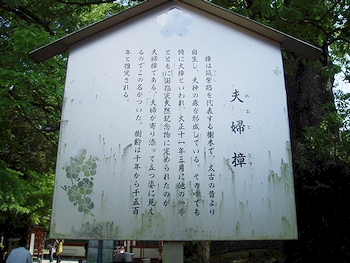 夫婦樟
樟は筑紫路を代表する樹木で、太古の昔より
自生し、天神の森を形成している。その中でも
特に大樟といわれ、大正十一年三月に他の一本
とともに国指定天然記念物に定められたのが
夫婦樟である。夫婦が寄り添って立つ姿に見え
るのでこの名がついた。樹齢は千年から千五百
年と推定される。